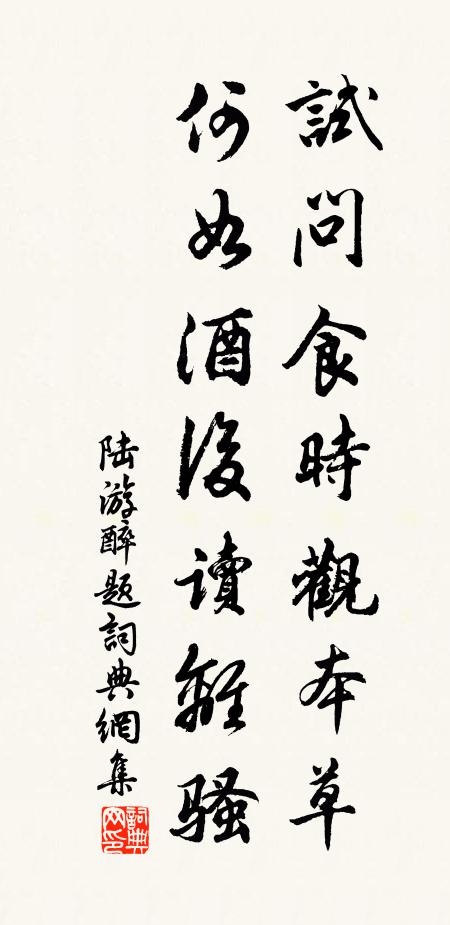 試問食時觀本草
何如酒後读離骚
陆游醉题詞典網集
詞典網印